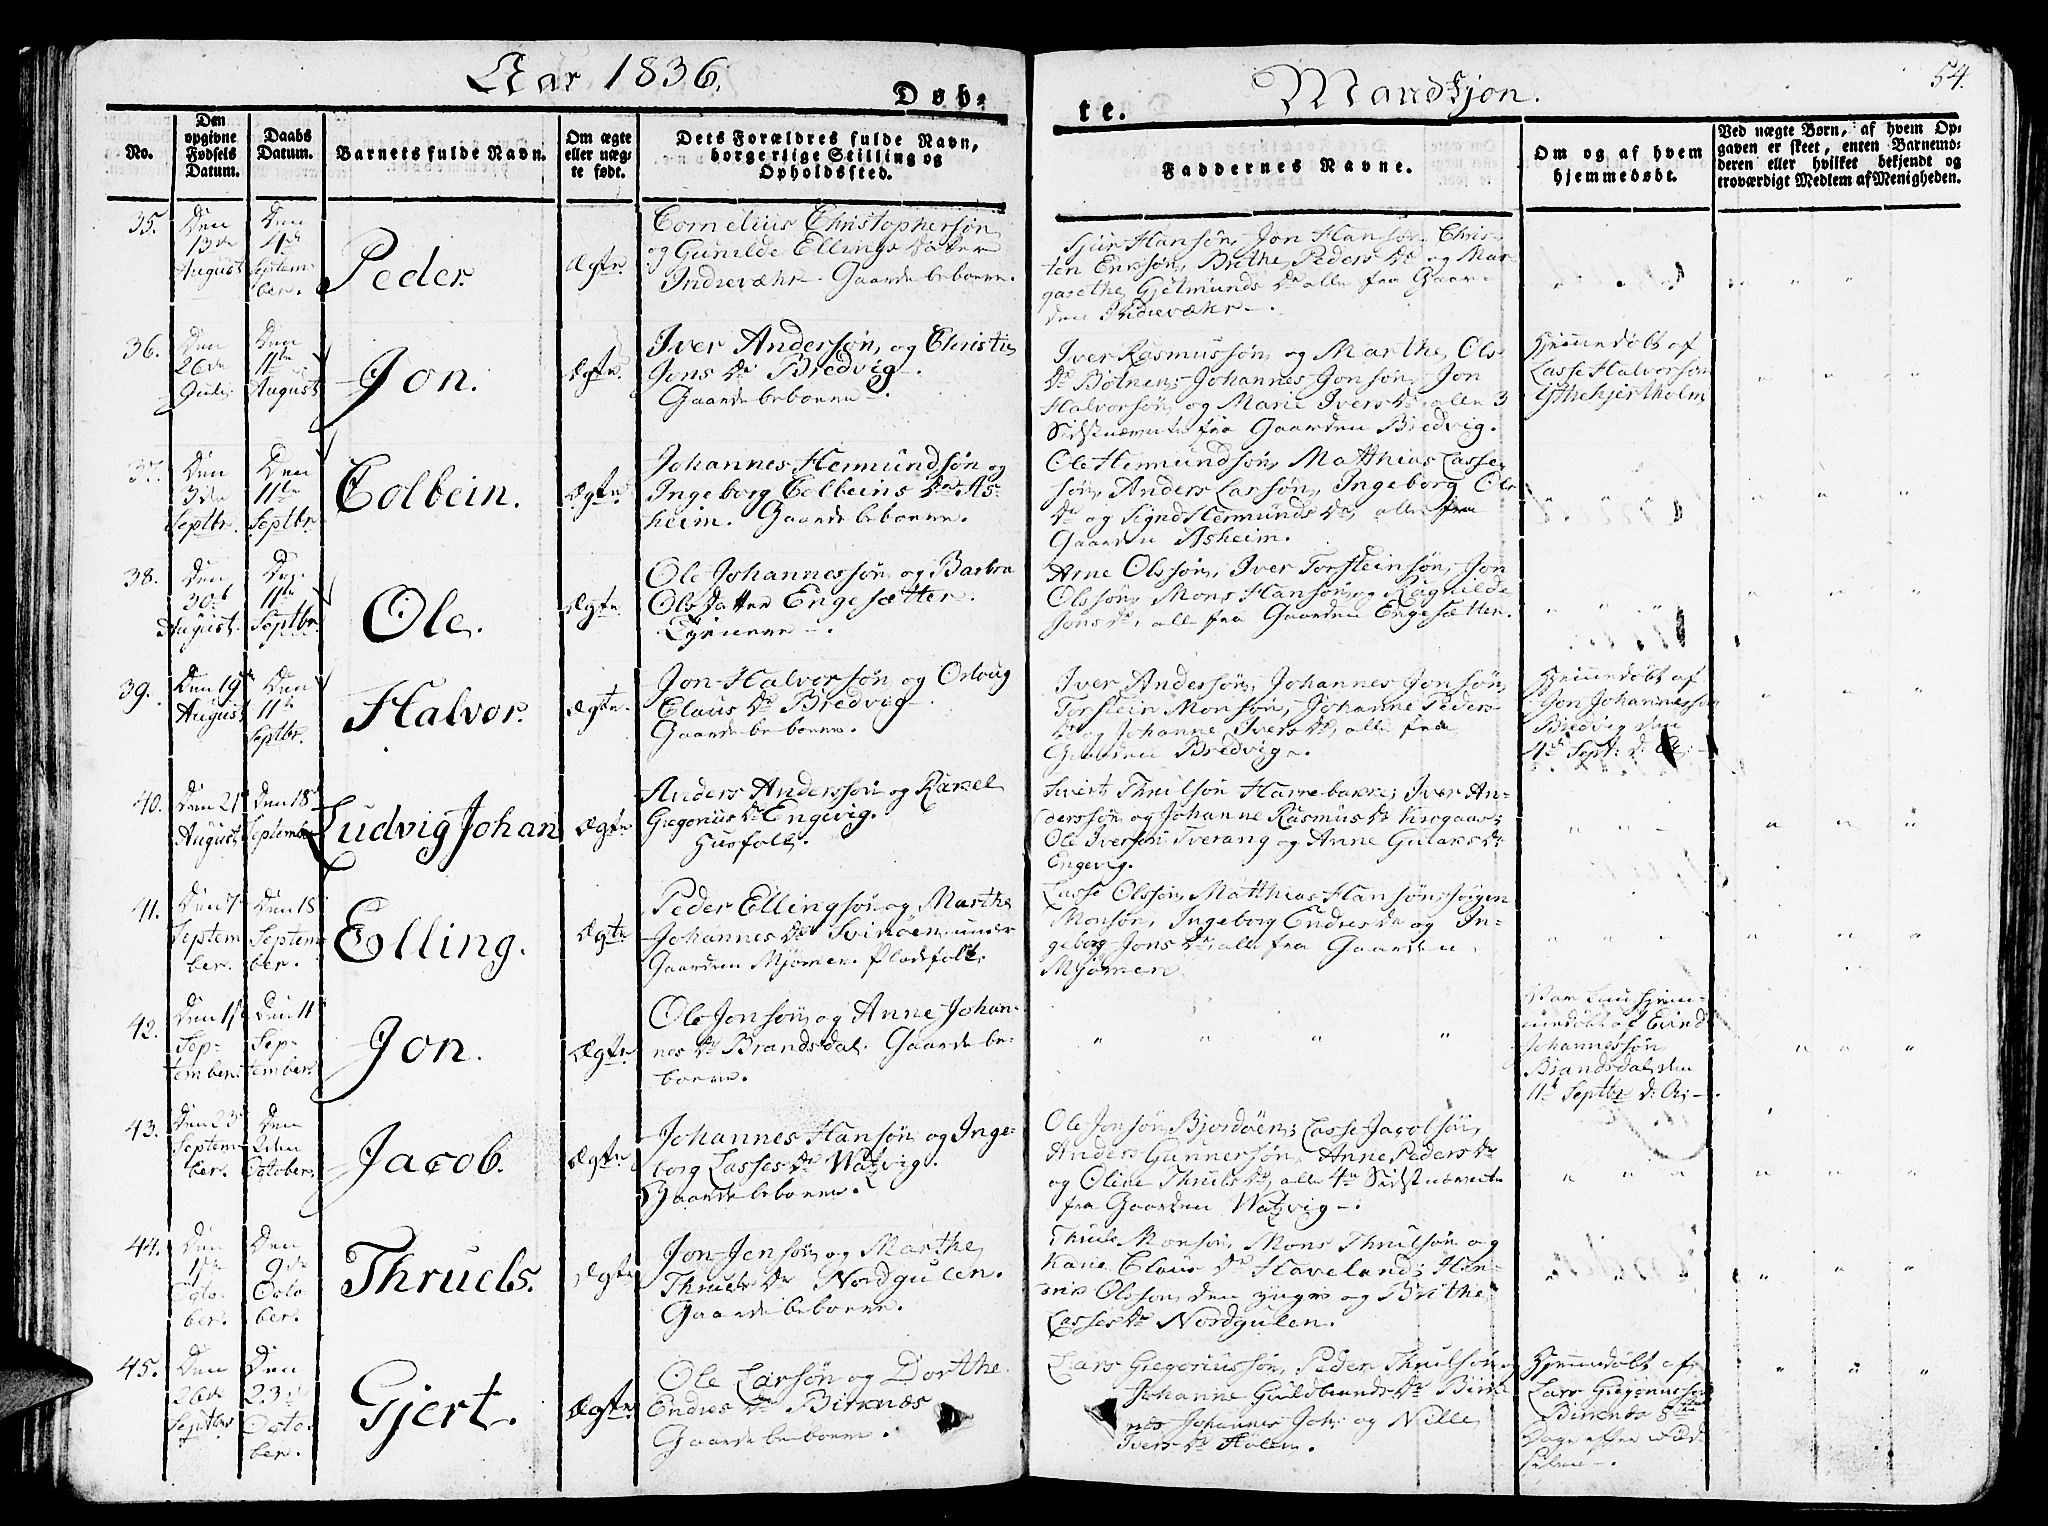 Aar 1836.
Døb-
te.
Mandkjøn.
54.
No.
Den opgivne Fødsels Datum.
Daabs Datum.
Barnets fulde Navn.
Om ægte eller uægte født.
Dets Forældres fulde Navn, borgerlige Stilling og Opholdssted.
Faddernes Navne.
Om og af hvem hjemmedøbt.
Ved uægte Børn, af hvem Opgaven er skeet, enten Barnemoderen eller hvilket bekjendt og troværdigt Medlem af Menigheden.
35.
Den
13de
August
Den
4de
Septem-
ber.
Peder.
Ægte.
Cornelius Christophersøn
og Gunilde Ellings Datter
Indrevæhr. Gaardebeboere.
Sjur Hansøn, Jon Hansøn, Chris-
ten Ericsøn, Brithe Peders Dr og Mar-
garethe Gjetmunds Dr alle fra Gaar-
den Indrevæhr.
36.
Den
26de
Juli.
Den
11te
August
Jon.
Ægte.
Iver Andersøn og Christie
Jons Dr Bredvig
Gaardebeboere.
Iver Rasmussøn og Marthe Ols
Dr Botnen, Johannes Jonsøn, Jon
Halvorsøn og Marie Ivers Dr, alle 3
Sidstnævnte fra Gaarden Bredvig.
Hjemmedøbt af
Lasse Halvorsøn
Ythrehjertholm
37.
Den
3de
Septbr.
Den
11te
Septbr.
Colbein.
Ægte.
Johannes Hermundsøn og
Ingeborg Colbeins Dr As-
heim. Gaardebeboere.
Ole Hermundsøn, Matthias Lasse-
søn, Anders Larsøn, Ingeborg Ols
Dr og Signe Hermunds Dr, alle fra
Gaarden Asheim.
38.
Den
30te
August.
Den
11te
Septbr.
Ole.
Ægte.
Ole Johannessøn og Barbra
Ols Datter Engesætter.
Arne Olssøn, Iver Torsteinsøn, Jon
Olssøn, Mons Hansøn og Ragnilde
Jons Dr, alle fra Gaarden Engesætter.
39.
Den 19de
August
Den
11te
Septbr.
Halvor.
Ægte.
Jon Halvorsøn og Oslaug
Claus Dr Bredvig
Gaardebeboere.
Iver Andersøn, Johannes Jonsøn,
Torstein Monsøn, Johanne Peders
Dr og Johanne Ivers Dr, alle fra
Gaarden Bredvig.
Hjemmedøbt af
Jon Johannessøn
Bredvig den
4de Sept: d: A:
40.
Den 21de
August
Den 18de
September
Ludvig Johan
Ægte
Anders Anderssøn og Rakel
Gregorius Dr Engevig.
Huusfolk.
Sivert Thrulsøn Harrebakke; Iver An-
derssøn og Johanne Rasmus Dr Krogaas;
Ole Iversøn Tverang og Anne Gulaks Dr
Engevig.
41.
Den 7de
Septem
ber.
Den 18
Septem
ber.
Elling.
Ægte
Peder Ellingsøn og Marthe
Johannes Dr Svinøen under
Gaarden Mjømen. Pladsfolk.
Lasse Olssøn, Matthias Hansøn, Jørgen
Monsøn, Ingeborg Endres Dr og In-
geborg Jons Dr, alle fra Gaarden
Mjømen
42.
Sep-
tember.
Den 11
Sep-
tember.
Jon.
Ægte.
Ole Jonsøn og Anne Johan-
nes Dr Brandsdal. Gaardebe-
boere.
Johannessøn
Brandsdal den
11te Septbr d: A:
43.
Den 23
Septem
ber.
Den
2den
October.
Jacob.
Ægte.
Johannes Hansøn og Inge-
borg Lasses Dr Watzvig.
Gaardebeboere.
Ole Jonsøn Bjordøen; Lasse Jacobsøn,
Anders Gunnersøn, Anne Peders Dr
og Oline Thruls Dr, alle 4re Sidstnævnte
fra Gaarden Watzvig.
44.
Den
1te
Octo-
ber.
Den
9de
Octo
ber.
Thruels.
Ægte
Jon Jensøn og Marthe
Thruls Dr Nordgulen.
Gaardebeboere.
Thruls Monsøn, Mons Thrulsøn og
Kari Claus Dr Haveland; Hen-
rik Olsson den yngre og Brithe
Lasses Dr Nordgulen.
45.
Den
26de
Septbr
Den
23de
Octo-
ber.
Gjert.
Ægte.
Ole Larsøn og Dorthe
Endres Dr Birknæs
Gaardebeboere.
Lars Gregoriussøn, Peder Thrulsøn og
Johanne Guldbrands Dr Birk-
næs Johannes Joh: og Nille
Ivers Dr Holm.
Hjemmedøbt af
Lars Gregoriussøn
Birknæs 8te
Dage efter Fød-
selen.